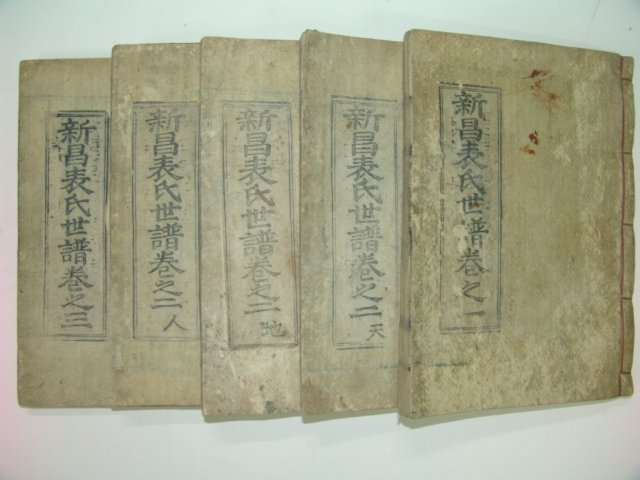 新昌表氏世譜卷之一
新昌表氏世譜卷之二天
新昌表氏世譜卷之二地
新昌表氏世譜卷之二人
新昌表氏世譜卷之三